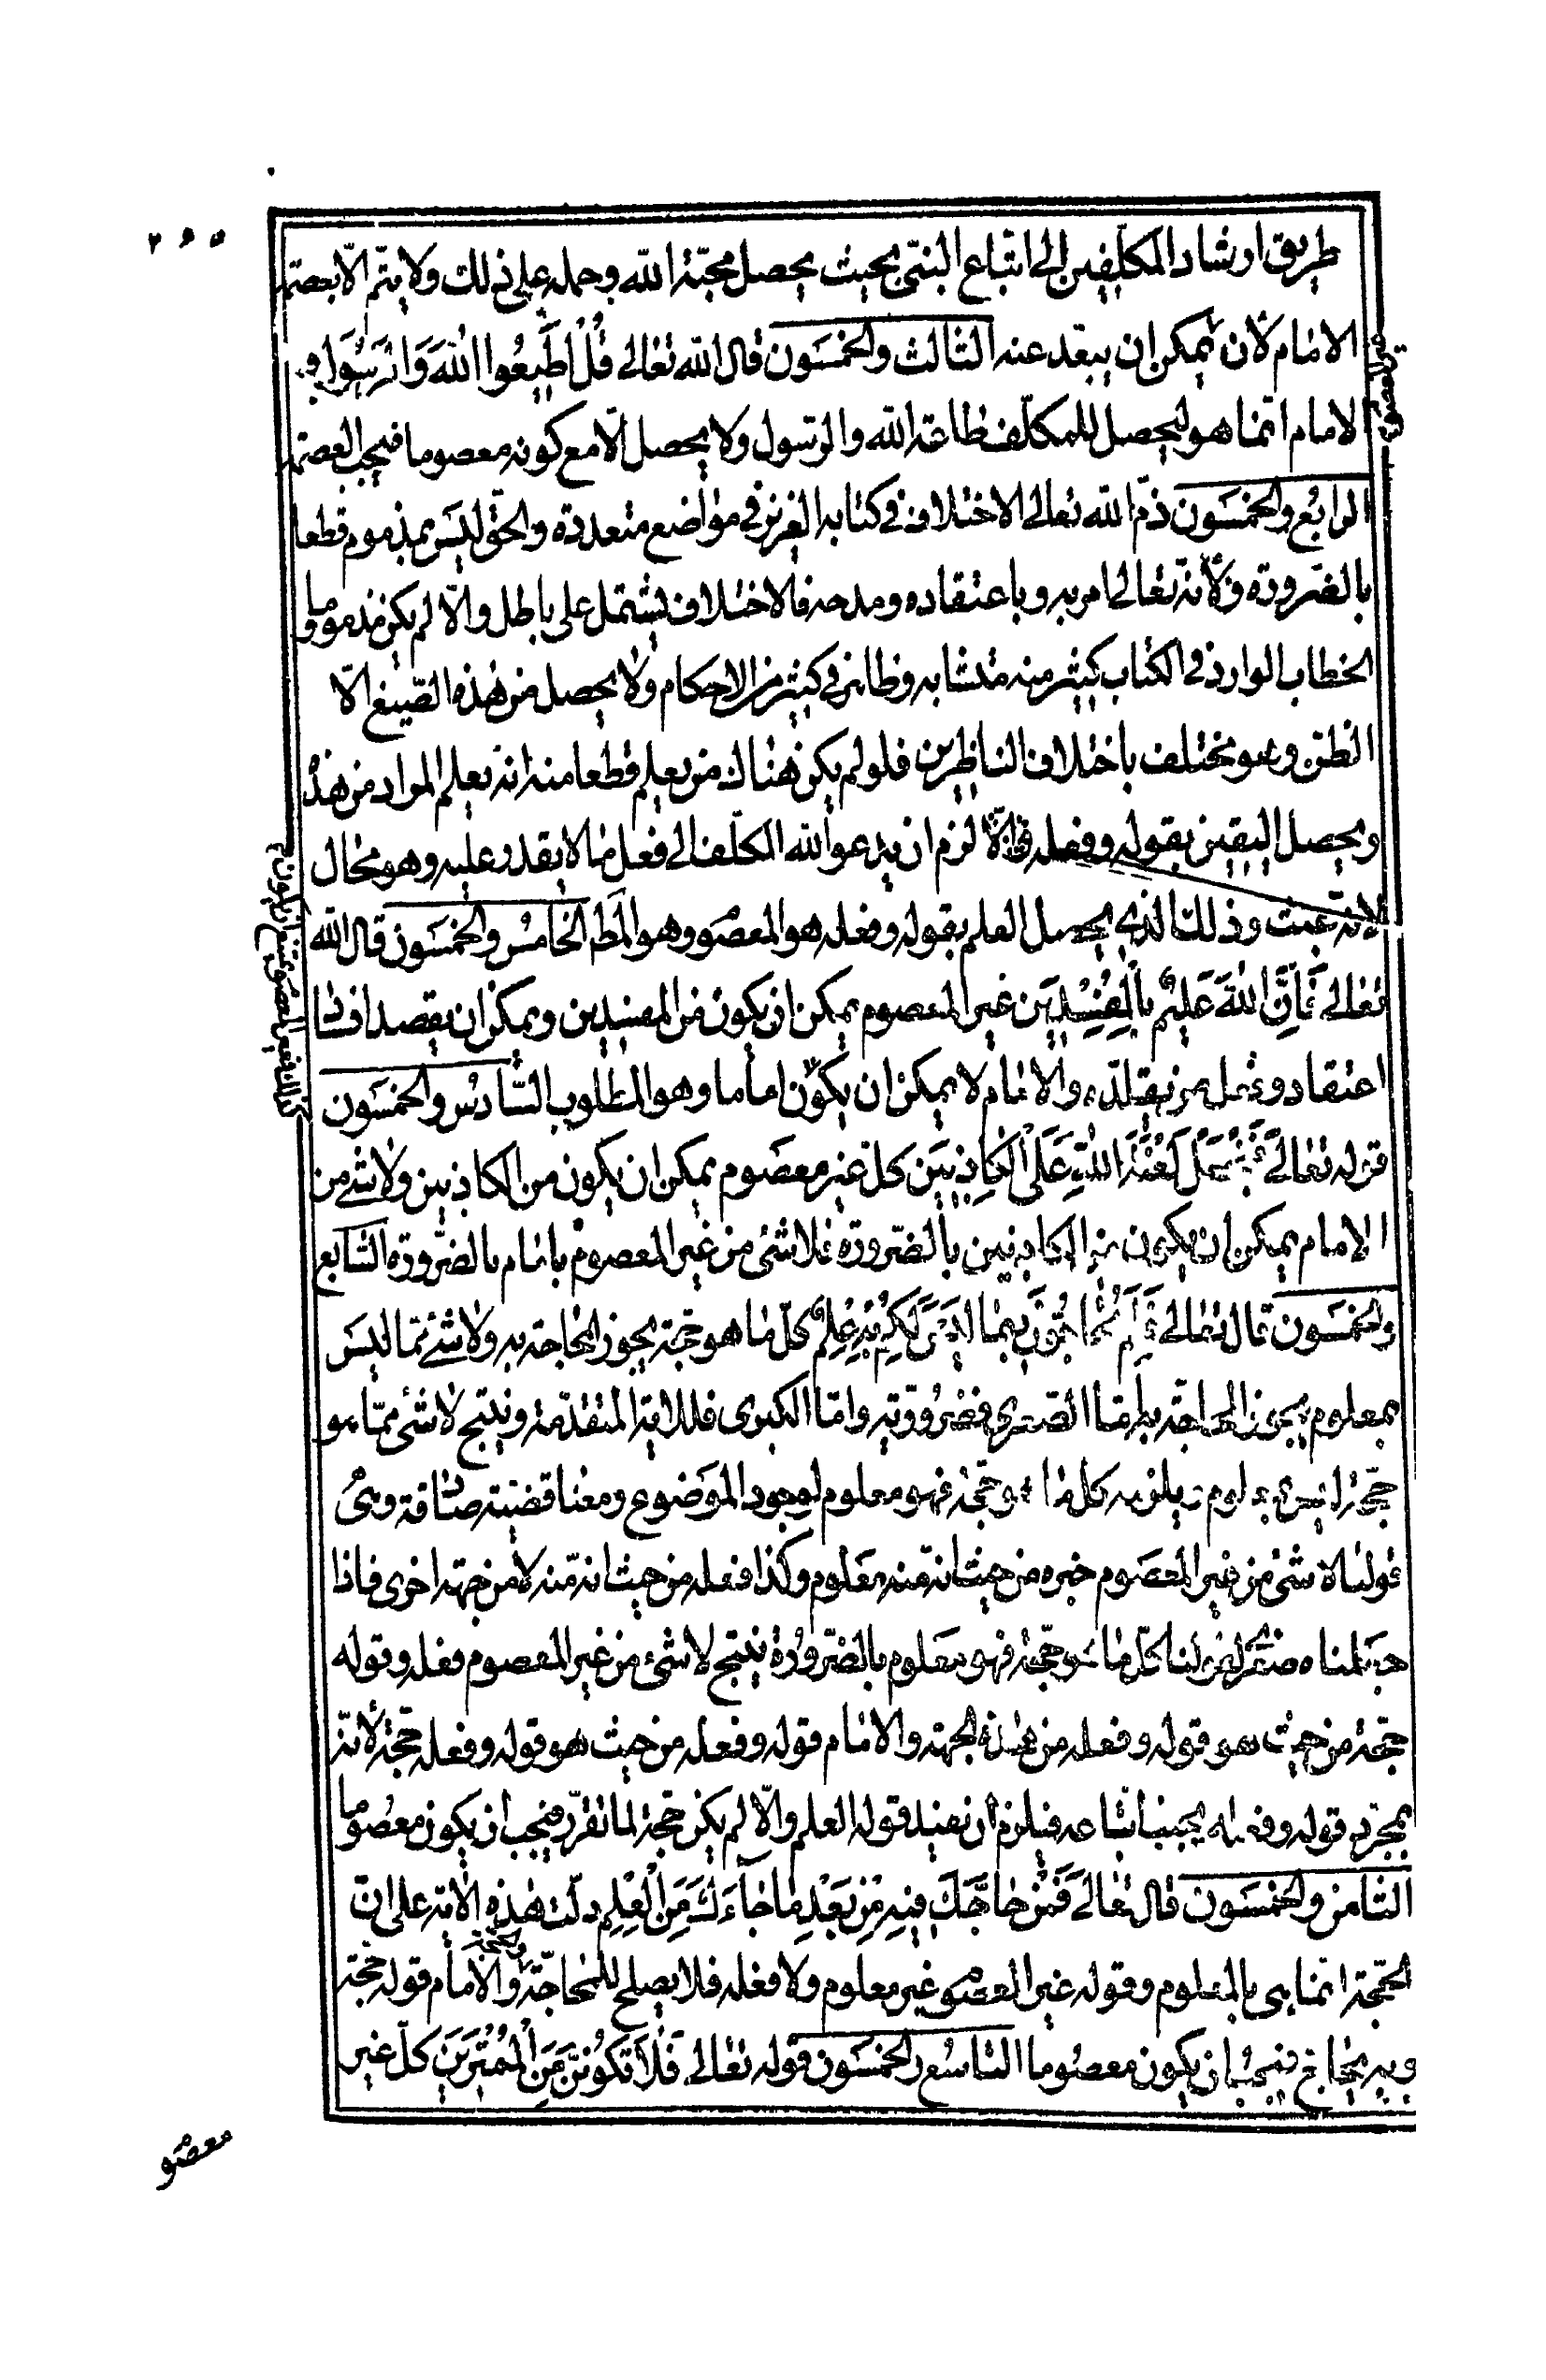 ٢٦٥
طريق ارشاد المكلّفين الى اتّباع النبيّ بحيث يحصل محبّة الله وحمله على ذلك ولا يتمّ الّا بعصمة
الامام لأن يمكن ان يبعّد عنه الثالث والخمسون قال الله تعالى قُلْ اَطِيعُوا اللهَ وَالرَّسُولَ و
الامام انّما هو ليحصل للمكلّف طاعة الله والرّسول ولا يحصل الّا مع كونه معصوما فيجب العصمة
الرابع والخمسون ذمّ الله تعالى الاختلاف في كتابه العزيز في مواضع متعددة والحق ليس بمذموم قطعا
بالضّرورة ولأنّه تعالى امر به وباعتقاده ومدحه فالاختلاف يشتمل على باطل والّا لم يكن مذموما و
الخطاب الوارد في الكتاب كثير منه متشابه وظاهر في كثير من الاحكام ولا يحصل من هذه الصّيغ الّا
الظنّ وهو مختلف باختلاف الناظرين فلو لم يكن هناك من يعلم قطعا منه انه يعلم المراد من هذه
ويحصل اليقين بقوله وفعله والّا لزم ان يدعو الله المكلّف الى فعل ما لا يقدر عليه وهو محال
لانّه عبث وذلك الذي يحصل العلم بقوله وفعله هو المعصوم وهو المط الخامس والخمسون قال الله
تعالى فَاِنَّ اللهَ عَلِيمٌ بِالْمُفْسِدِينَ غير المعصوم يمكن ان يكون من المفسدين ويمكن ان يقصد افساد
اعتقاد وعمل من يقلّده والامام لا يمكن ان يكون اماما وهو المطلوب السّادس والخمسون
قوله تعالى فَنَجْعَلْ لَعْنَةَ اللهِ عَلَى الْكَاذِبِينَ كل غير معصوم يمكن ان يكون من الكاذبين ولا شئ من
الامام يمكن ان يكون من الكاذبين بالضّرورة فلا شئ من غير المعصوم بامام بالضّرورة السّابع
والخمسون قال تعالى فَلِمَ تُحَاجُّونَ فِيمَا لَيْسَ لَكُمْ بِهِ عِلْمٌ كلّ ما هو حجّة يجوز المحاجة به ولا شئ ممّا ليس
بمعلوم يجوز المحاجّة به امّا الصغرى فضروريّة وامّا الكبرى فللاية المتقدّمة وينتج لا شئ ممّا هو
حجّة ليس بمعلوم ويلزمه كل ما هو حجّة فهو معلوم لوجود الموضوع ومعنا قضيّة صادقة وهى
قولنا لا شئ من غير المعصوم خبره من حيث انه منه معلوم وكذا فعله من حيث انه منه لا من جهة اخرى فاذا
جعلناه صغرى لقولنا كلّ ما هو حجّة فهو معلوم بالضّرورة ينتج لا شئ من غير المعصوم فعله وقوله
حجّة من حيث هو قوله وفعله من هذه الجهة والامام قوله وفعله من حيث هو قوله وفعله حجّة لأنّه
بمجرّد قوله وفعله يجب اتباعه فيلزم ان يفيد قوله العلم والّا لم يكن حجّة لما تقرّر فيجب ان يكون معصوما
الثامن والخمسون قال تعالى فَمَنْ حَاجَّكَ فِيهِ مِنْ بَعْدِ مَا جَاءَكَ مِنَ الْعِلْمِ دلّت هذه الاية على انّ
الحجّة انّما هى بالمعلوم وقوله غير المعصوم غير معلوم ولا فعله فلا يصلح للمحاجّة والحجّة والامام قوله حجّة
وبه يحاج فيجب ان يكون معصوما التاسع والخمسون قوله تعالى فَلَا تَكُونَنَّ مِنَ الْمُمْتَرِينَ كلّ غير
معصو